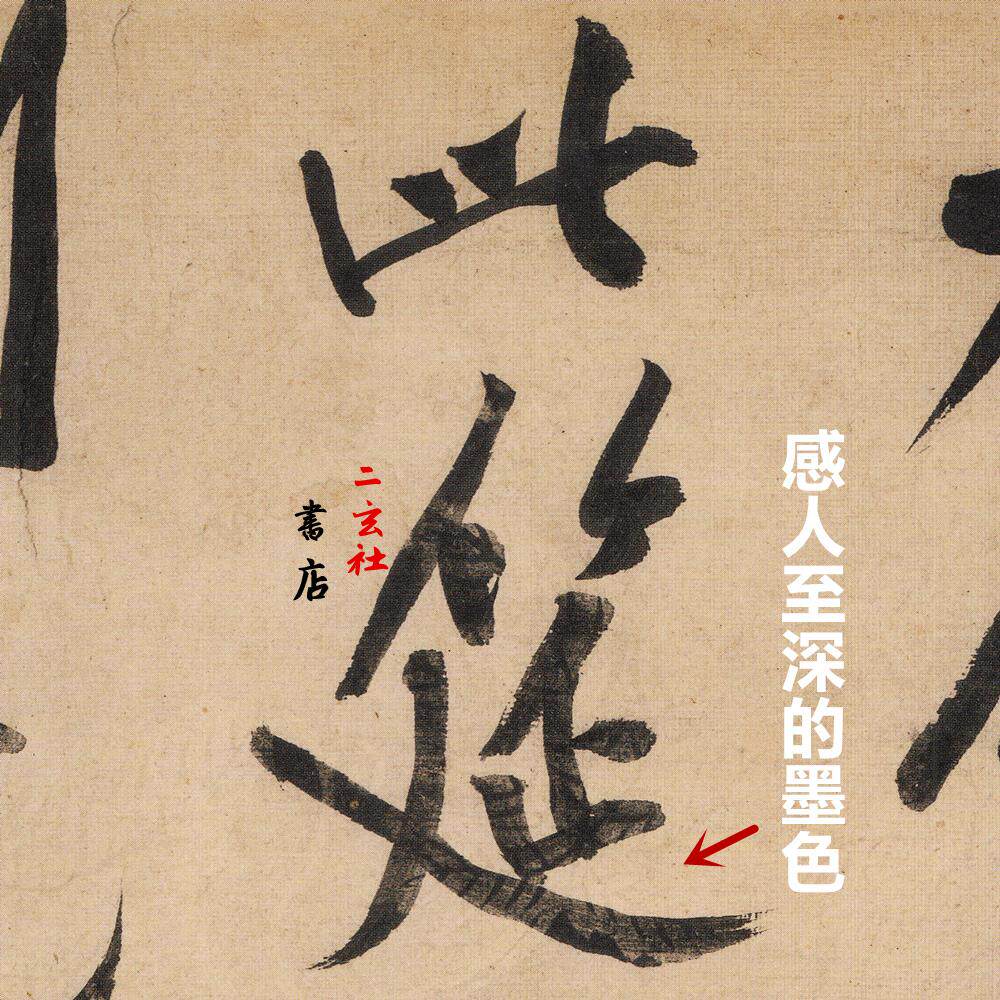 感人至深的墨色
此
筵
二玄社
書店